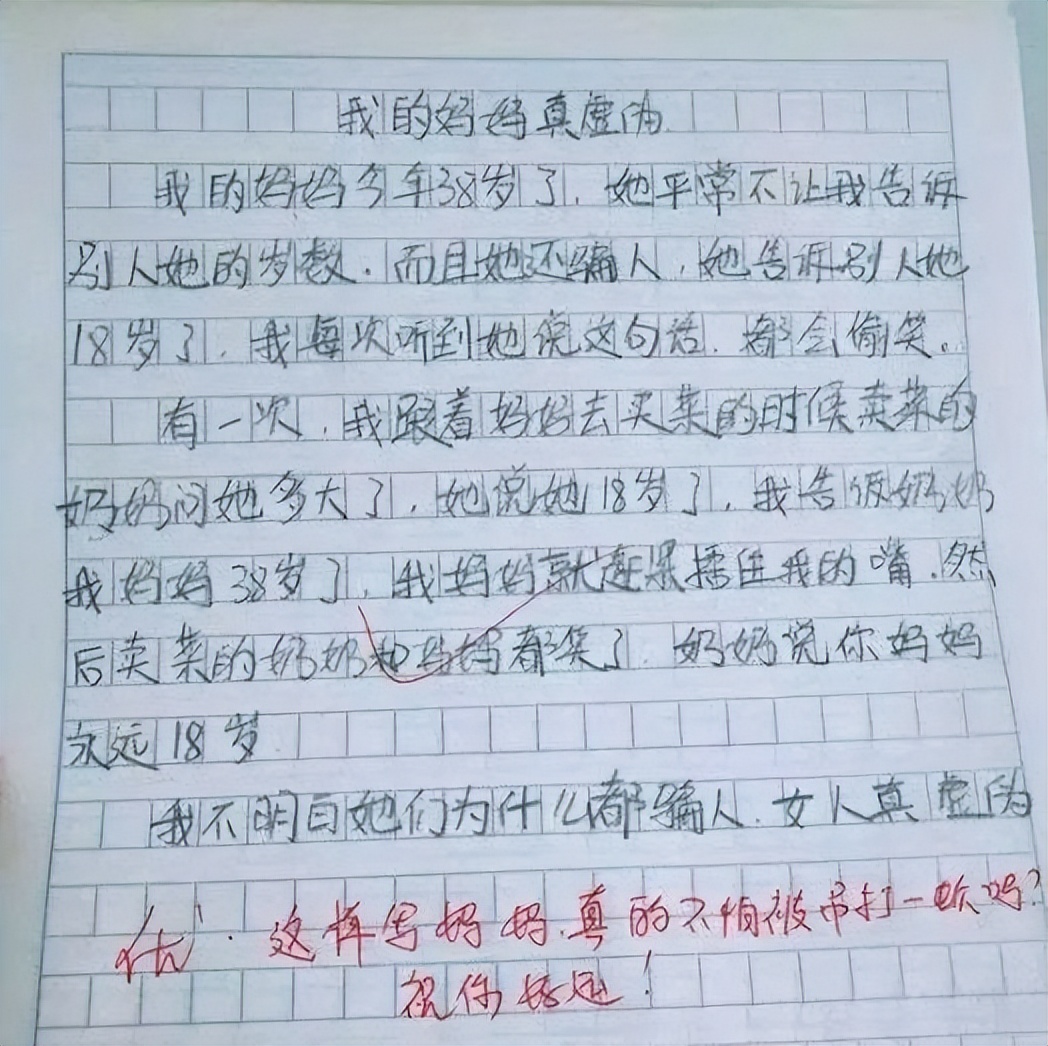 我的妈妈真虚伪
我的妈妈今年38岁了，她平常不让我告诉
别人她的岁数．而且她还骗人，她告诉别人她
18岁了，我每次听到她说这句话，都会偷笑。
有一次，我跟着妈妈去买菜的时候卖菜的
奶奶问她多大了，她说她18岁了，我告诉奶奶
我妈妈38岁了，我妈妈就赶紧捂住我的嘴，然
后卖菜的奶奶和妈妈都笑了，奶奶说你妈妈
永远18岁
我不明白她们为什么都骗人，女人真虚伪
优．这样写妈妈，真的不怕被吊打一顿吗？
祝你好运！